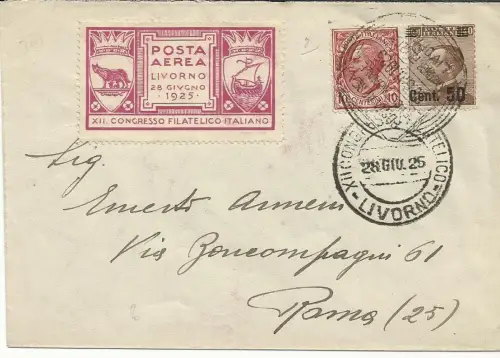 POSTA
AEREA
LIVORNO
28 GIVGNO
1925
XII. CONGRESSO FILATELICO ITALIANO
10
Cent. 50
XII CONG FILATELICO
28 GIU. 25
LIVORNO
Sig.
Ernesto Armeni
Via Boncompagni 61
Roma (25)